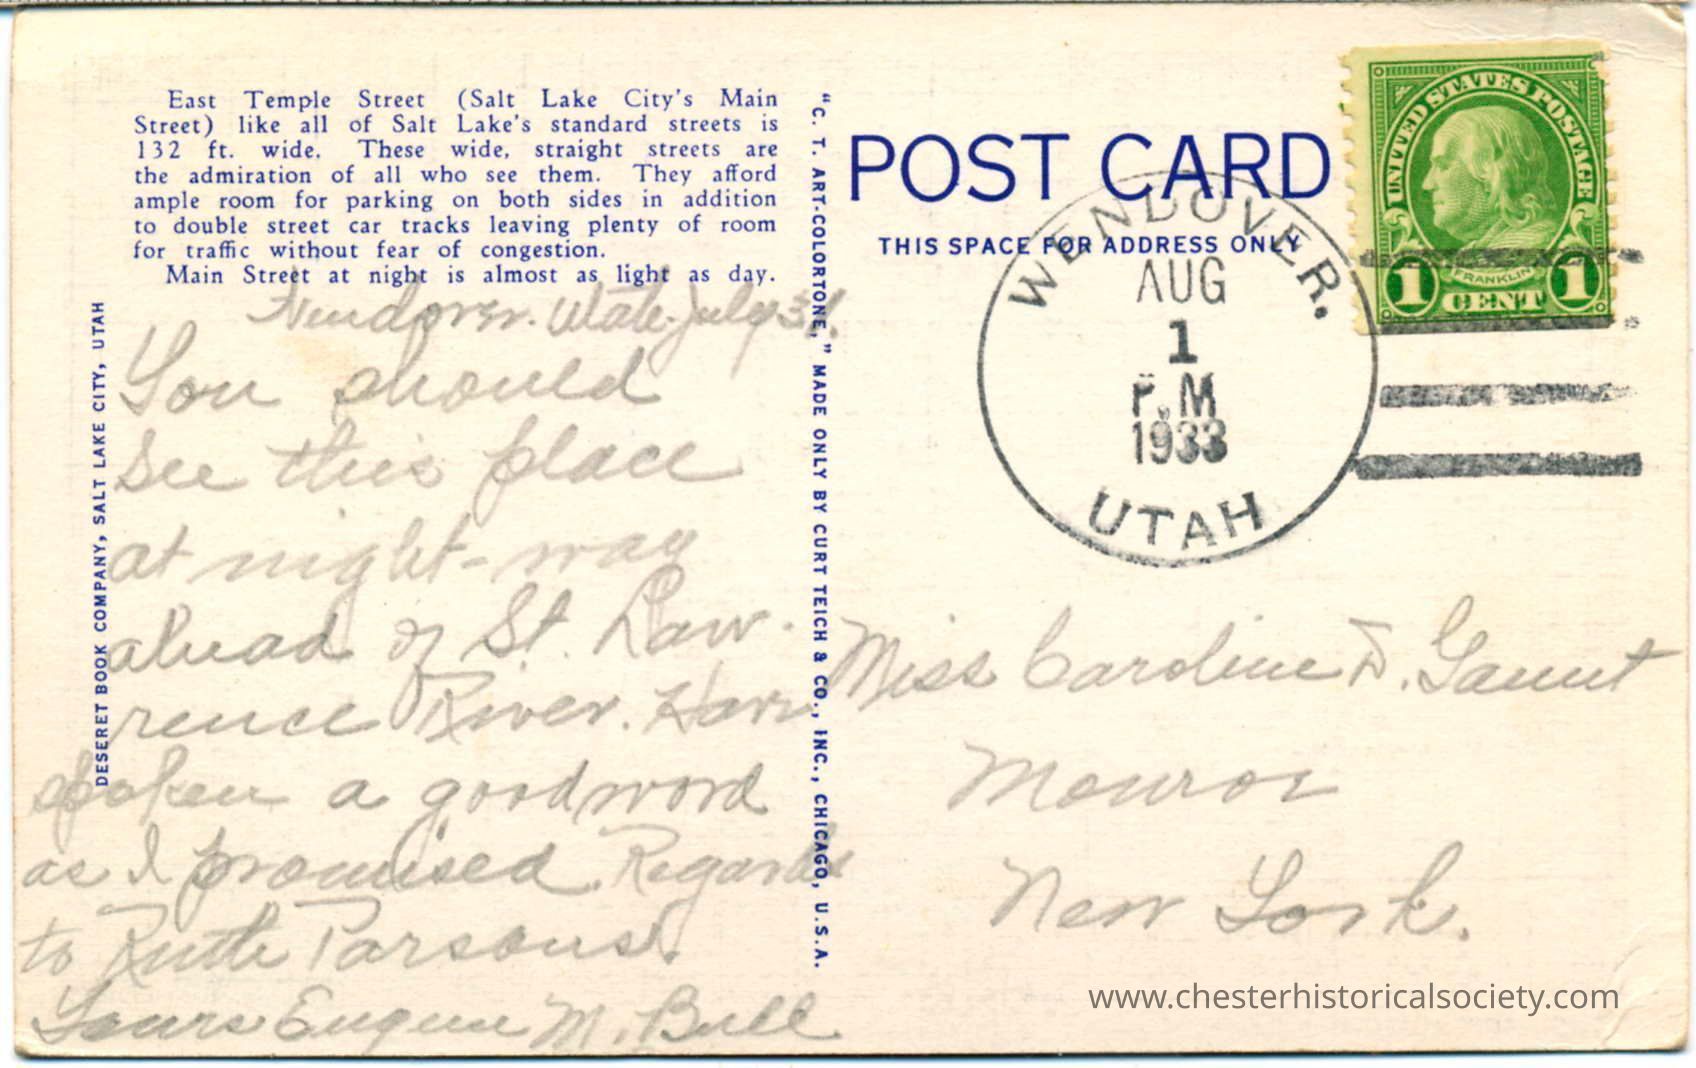 East Temple Street (Salt Lake City's Main
Street) like all of Salt Lake's standard streets is
132 ft. wide. These wide, straight streets are
the admiration of all who see them. They afford
ample room for parking on both sides in addition
to double street car tracks leaving plenty of room
for traffic without fear of congestion.
Main Street at night is almost as light as day.
DESERET BOOK COMPANY, SALT LAKE CITY, UTAH
Wendover. Utah. July 31.
You should
see this place
at night-way
ahead of St. Law-
rence River. Have
spoken a good word
as I promised. Regards
to Ruth Parsons.
Yours Eugene M. Bull
"C. T. ART-COLORTONE," MADE ONLY BY CURT TEICH & CO., INC., CHICAGO, U.S.A.
POST CARD
THIS SPACE FOR ADDRESS ONLY
WENDOVER.
AUG
1
P.M
1933
UTAH
UNITED STATES POSTAGE
FRANKLIN
1 CENT 1
Miss Caroline D. Gaunt
Monroe
New York.
www.chesterhistoricalsociety.com